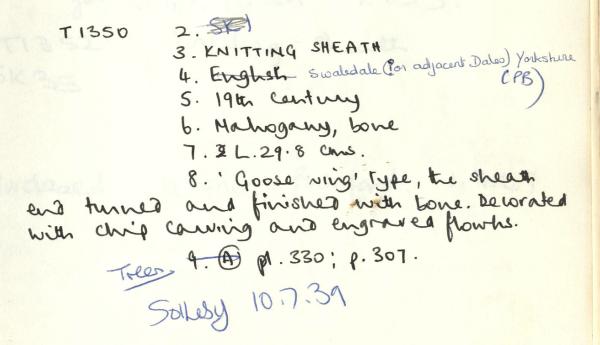 T1350 2. SK1
3. KNITTING SHEATH
4. English Swaledale (? or adjacent Dales) Yorkshire
(PB)
5. 19th Century
6. Mahogany, bone
7. L. 29.8 cms.
8. 'Goose wing' type, the sheath
end turned and finished with bone. Decorated
with chip carving and engraved flowers.
9. (A) pl. 330; p. 307.
Trees
Sotheby 10.7.39